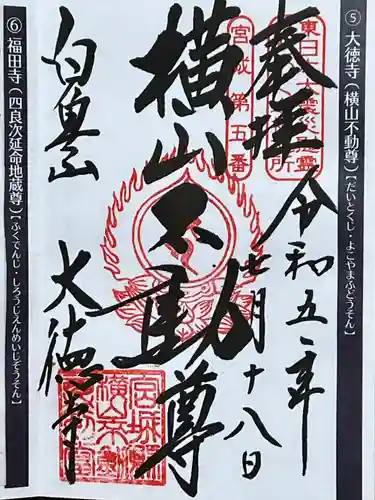 ⑤ 大徳寺(横山不動尊)【だいとくじ・よこやまふどうそん】
奉拝
令和五年
七月十八日
宮城第五番
横山不動尊
白魚山
大徳寺
⑥ 福田寺(四良次延命地蔵尊)【ふくでんじ・しろうじえんめいじぞうそん】